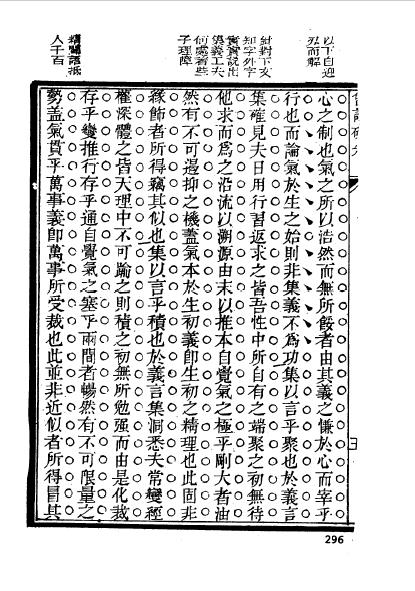 以下自迎
刃而解
針對下文
知字外字
實實說出
集義工夫
何處著些
子理障
精闢語抵
人千百
心之制也氣之所以浩然而無所餒者由其義之慊於心而宰乎
行也而論氣於生之始則非集義不為功集以言乎聚也於義言
集確見夫日用行習返求之皆吾性中所自有之端聚之初無待
他求而為之沿流以溯源由末以推本自覺氣之極乎剛大者油
然有不可遏抑之機蓋氣本於生初義即生初之精理也此固非
緣飾者所得竊其似也集以言乎積也於義言集洞悉夫常變經
權深體之皆天理中不可踰之則積之初無所勉强而由是化裁
存乎變推行存乎通自覺氣之塞乎兩間者暢然有不可限量之
勢蓋氣貫乎萬事義即萬事所受裁也此並非近似者所得冒其
296